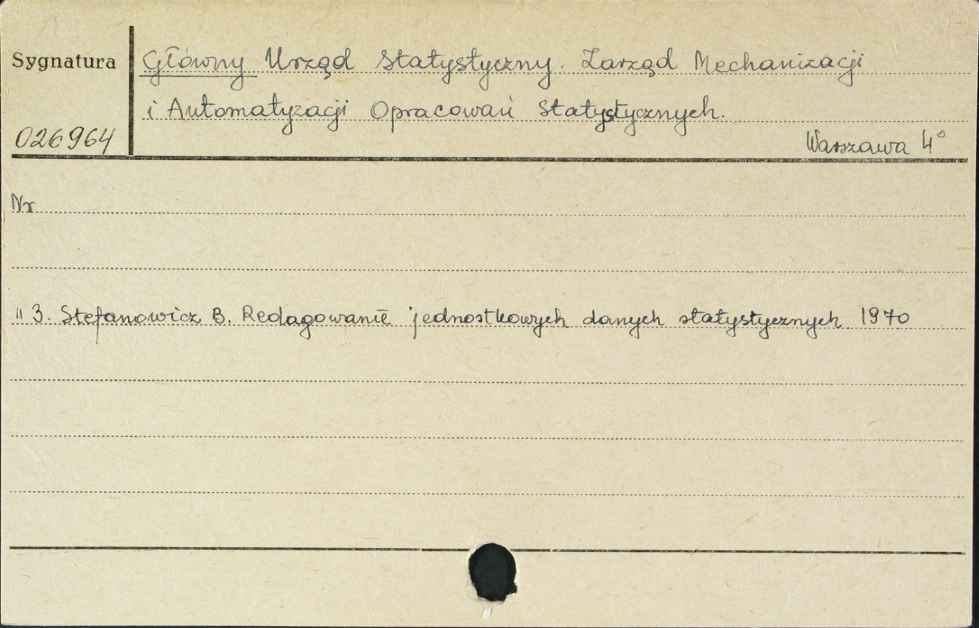 Sygnatura Główny Urząd Statystyczny. Zarząd Mechanizacji
i Automatyzacji Opracowań Statystycznych.
026964 Warszawa 4°
Nr
" 3. Stefanowicz B. Redagowanie jednostkowych danych statystycznych 1970